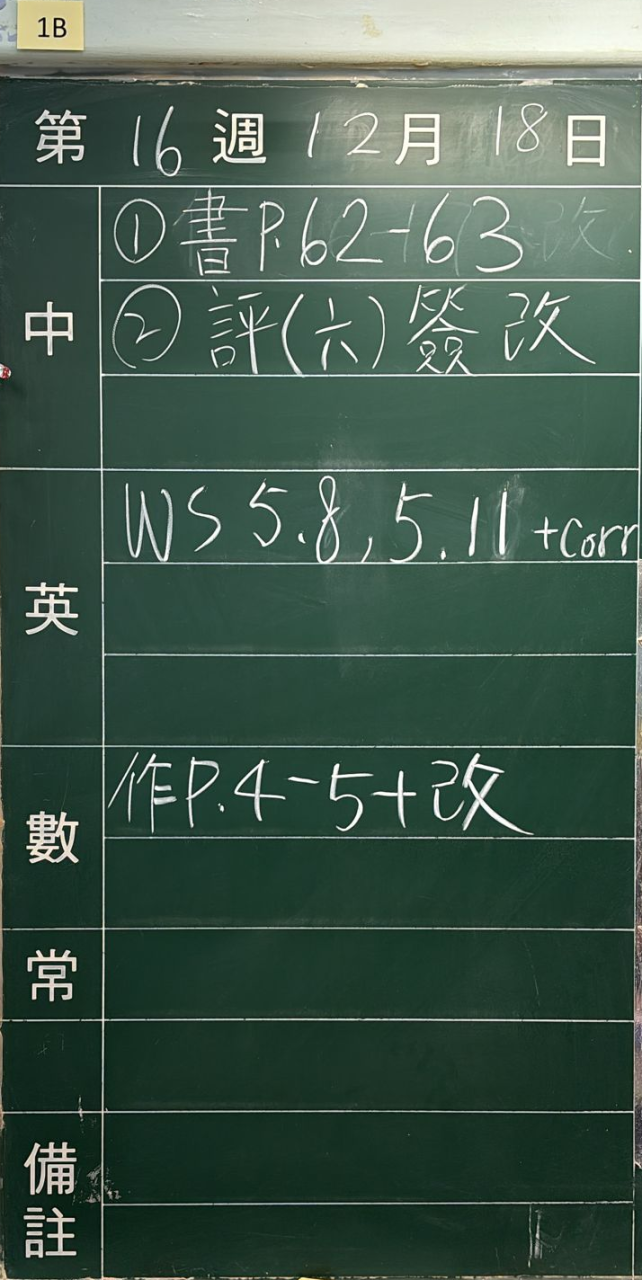 1B
第 16 週 12 月 18 日
中
① 書 P.62-63
② 評(六)簽改
英
WS 5.8, 5.11 +Corr
數
作P.4-5+改
常
備註